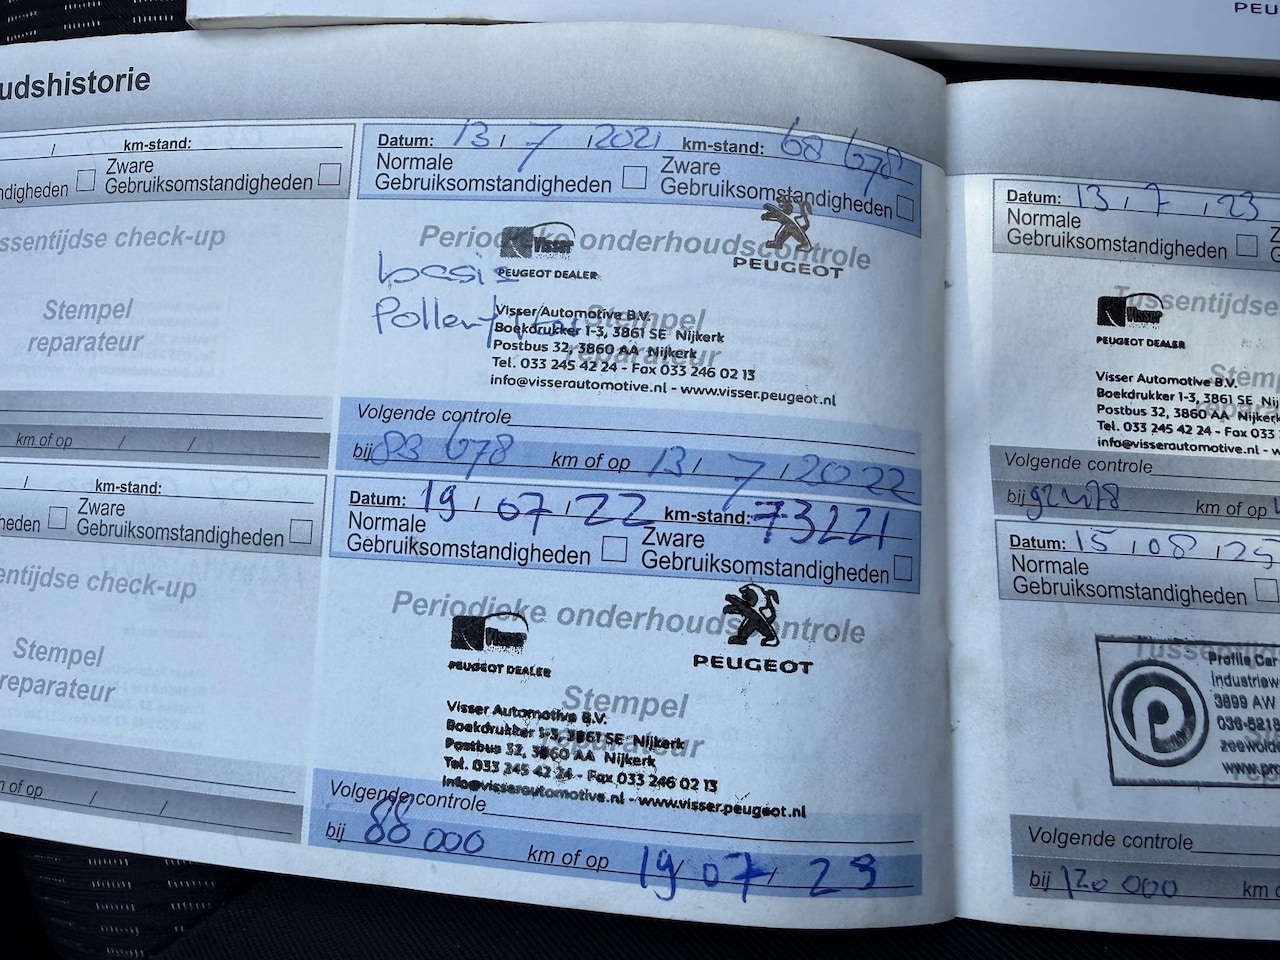 PEU
udshistorie
/ km-stand:
ndigheden Zware Gebruiksomstandigheden
ssentijdse check-up
Stempel
reparateur
km of op / /
/ km-stand:
heden Zware Gebruiksomstandigheden
entijdse check-up
Stempel
reparateur
m of op / /
Datum: 13 / 7 / 2021 km-stand: 68 678
Normale Zware
Gebruiksomstandigheden Gebruiksomstandigheden
Periodieke onderhoudscontrole
Visser
PEUGEOT DEALER
PEUGEOT
basis
Pollenfilter
Stempel
reparateur
Visser Automotive B.V.
Boekdrukker 1-3, 3861 SE Nijkerk
Postbus 32, 3860 AA Nijkerk
Tel. 033 245 42 24 - Fax 033 246 02 13
info@visserautomotive.nl - www.visser.peugeot.nl
Volgende controle
bij 83 678 km of op 13 / 7 / 2022
Datum: 19 / 07 / 22 km-stand: 73221
Normale Zware
Gebruiksomstandigheden Gebruiksomstandigheden
Periodieke onderhoudscontrole
Visser
PEUGEOT DEALER
PEUGEOT
Stempel
reparateur
Visser Automotive B.V.
Boekdrukker 1-3, 3861 SE Nijkerk
Postbus 32, 3860 AA Nijkerk
Tel. 033 245 42 24 - Fax 033 246 02 13
info@visserautomotive.nl - www.visser.peugeot.nl
Volgende controle
bij 88 000 km of op 19 / 07 / 23
Datum: 13 / 7 / 23
Normale Z
Gebruiksomstandigheden G
Tussentijdse
Visser
PEUGEOT DEALER
Stem
Visser Automotive B.V.
Boekdrukker 1-3, 3861 SE Nij
Postbus 32, 3860 AA Nijkerk
Tel. 033 245 42 24 - Fax 033
info@visserautomotive.nl - w
Volgende controle
bij km of op
Datum: 15 / 08 / 25
Normale
Gebruiksomstandigheden
Tussentijd
Profile Car
Industriew
3899 AW
036-5218
zeewolde
www.pro
Volgende controle
bij 120 000 km o